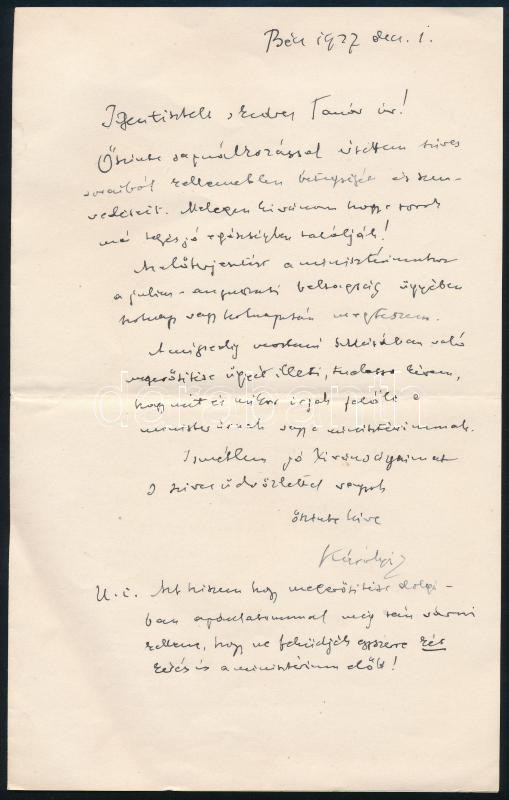 Bécs 1927 dec. 1.
Igentisztelt kedves Tanár úr!
Őszinte sajnálkozással vettem szíves
soraiból kellemetlen betegségét és szen-
vedéseit. Melegen kívánom hogy e sorok
már teljes jó egészségben találják!
Az előterjesztést a minisztériumhoz
a julius-augusztusi betegség ügyében
holnap vagy holnapután megteszem.
A mi pedig mostani állásában való
megerősítése ügyét illeti, tudassa kérem,
hogy mit és mikor írjak felőle a
miniszter úrnak vagy a minisztériumnak.
Ismételten jó kívánságaimat
s szíves üdvözlettel vagyok
őszinte híve
Károlyi
U. i. Azt hiszem hogy megerősítése dolgá-
ban ajánlatommal még várni
kellene, hogy ne feküdjék egyszerre két
kérés is a minisztérium előtt!
darabanth